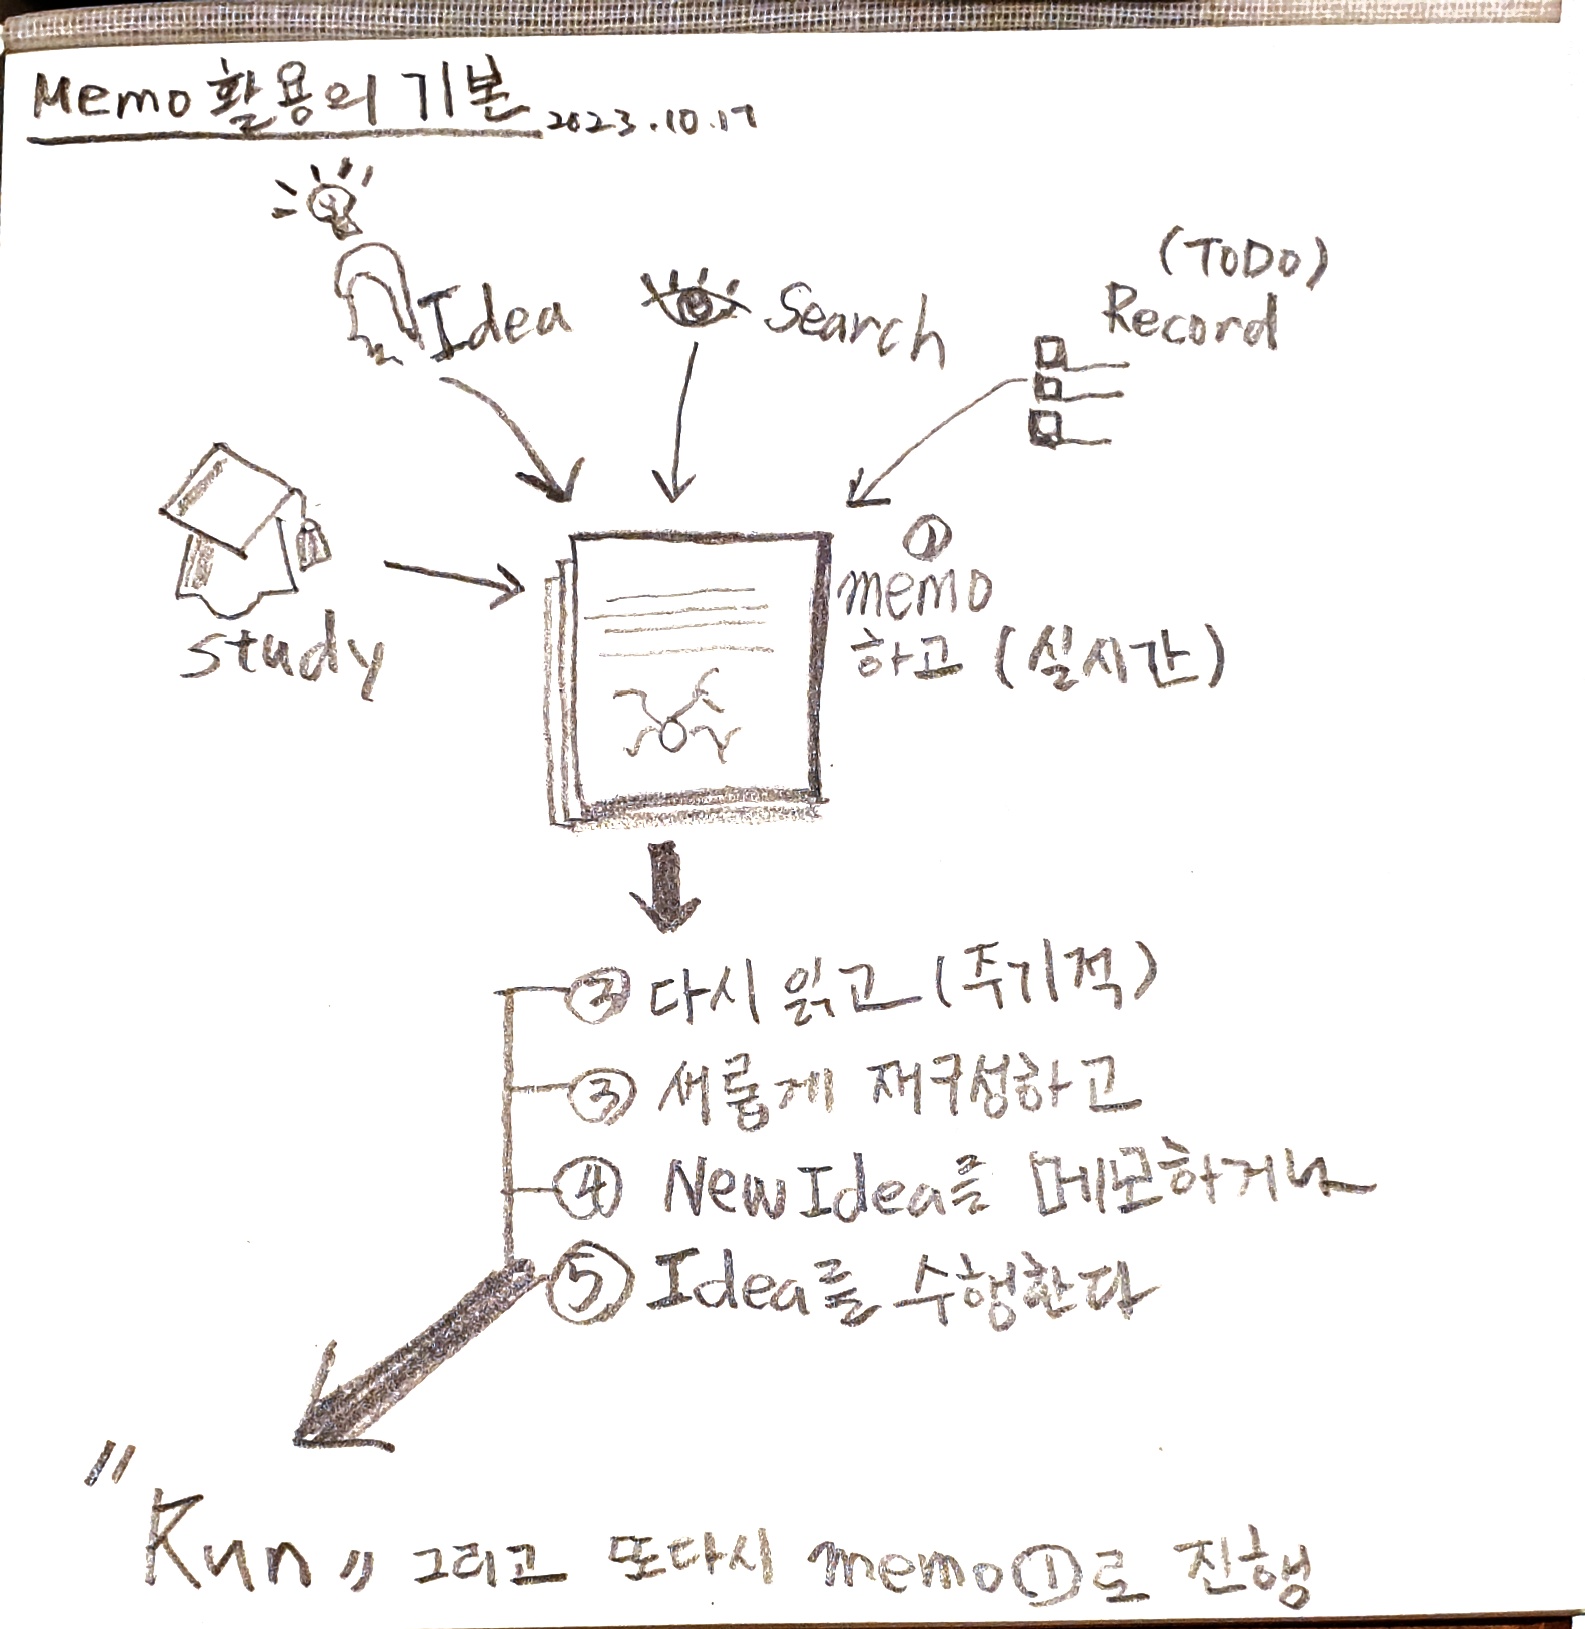 Memo 활용의 기본 2023.10.17
Idea
Search
(ToDo)
Record
study
①
memo
하고 (실시간)
② 다시 읽고 (주기적)
③ 새롭게 재구성하고
④ New Idea를 메모하거나
⑤ Idea를 수행한다
"Run" 그리고 또다시 memo ①로 진행